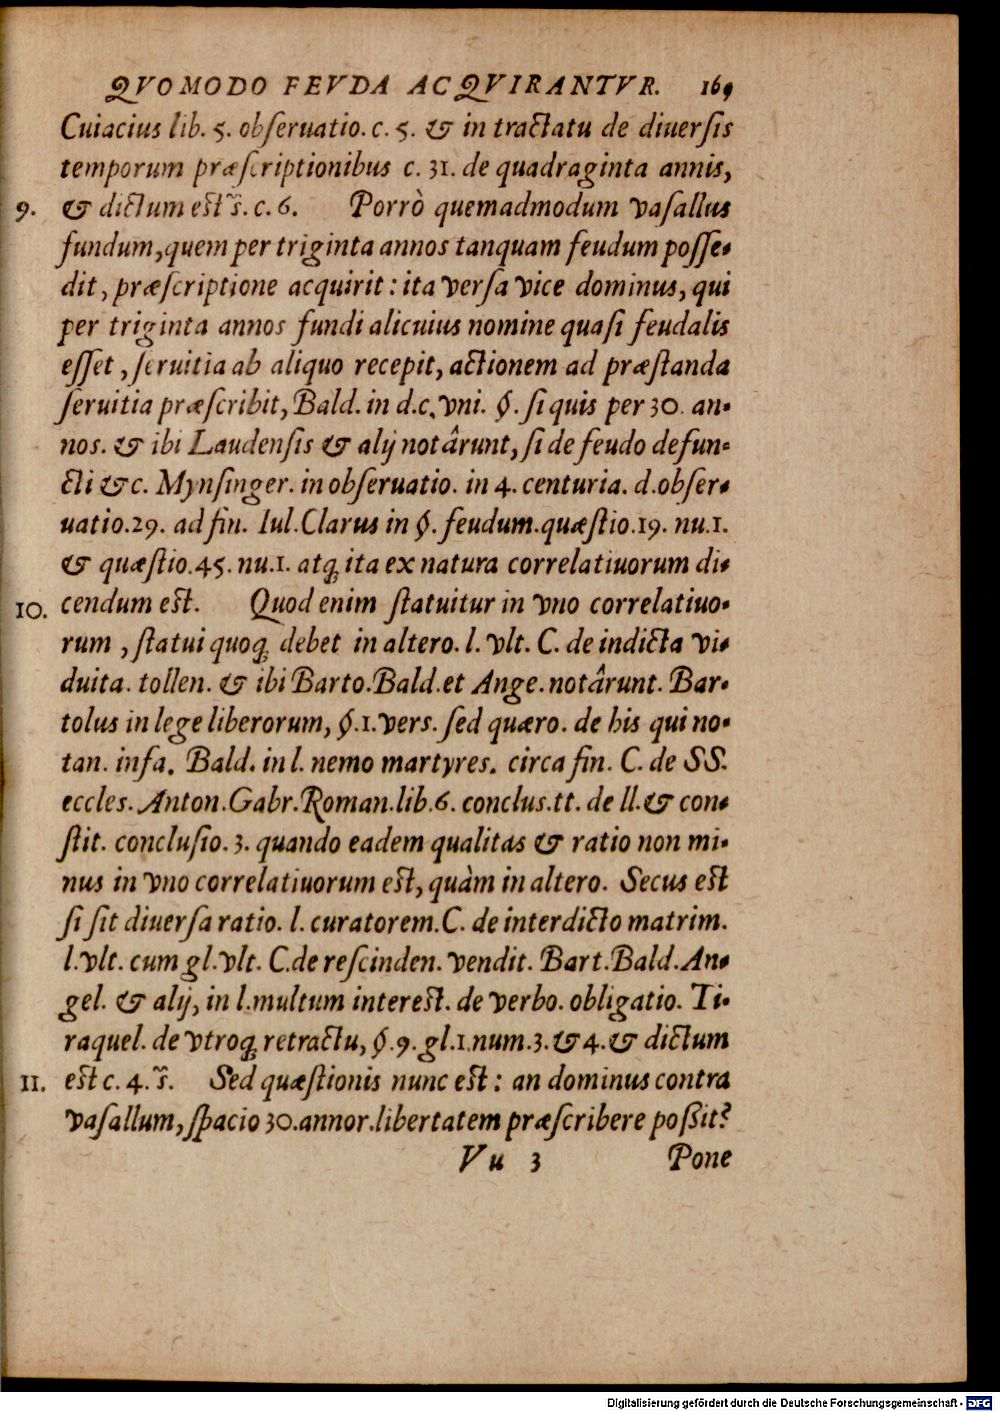 QVOMODO FEVDA ACQVIRANTVR. 169
Cuiacius lib. 5. obſeruatio. c. 5. & in tractatu de diuerſis
temporum præſcriptionibus c. 31. de quadraginta annis,
9. & dictum est s̃. c. 6. Porrò quemadmodum vaſallus
fundum, quem per triginta annos tanquam feudum poſſe-
dit, præſcriptione acquirit: ita verſa vice dominus, qui
per triginta annos fundi alicuius nomine quaſi feudalis
eſſet, ſeruitia ab aliquo recepit, actionem ad præſtanda
ſeruitia præſcribit, Bald. in d.c. vni. §. ſi quis per 30. an-
nos. & ibi Laudenſis & alij notârunt, ſi de feudo defun-
cti &c. Mynſinger. in obſeruatio. in 4. centuria. d. obſer-
uatio. 29. ad fin. Iul. Clarus in §. feudum. quæſtio. 19. nu. 1.
& quæſtio. 45. nu. 1. atq; ita ex natura correlatiuorum di-
10. cendum est. Quod enim ſtatuitur in vno correlatiuo-
rum, ſtatui quoq; debet in altero. l. vlt. C. de indicta vi-
duita. tollen. & ibi Barto. Bald. et Ange. notârunt. Bar-
tolus in lege liberorum, §. 1. verſ. ſed quæro. de his qui no-
tan. infa. Bald. in l. nemo martyres. circa fin. C. de SS.
eccles. Anton. Gabr. Roman. lib. 6. conclus. tt. de ll. & con-
ſtit. concluſio. 3. quando eadem qualitas & ratio non mi-
nus in vno correlatiuorum est, quàm in altero. Secus est
ſi ſit diuerſa ratio. l. curatorem. C. de interdicto matrim.
l. vlt. cum gl. vlt. C. de reſcinden. vendit. Bart. Bald. An-
gel. & alij, in l. multum interest. de verbo. obligatio. Ti-
raquel. de vtroq; retractu, §. 9. gl. 1. num. 3. & 4. & dictum
11. est c. 4. s̃. Sed quæſtionis nunc est: an dominus contra
vaſallum, ſpacio 30. annor. libertatem præſcribere poßit?
Vu 3 Pone
Digitalisierung gefördert durch die Deutsche Forschungsgemeinschaft - DFG